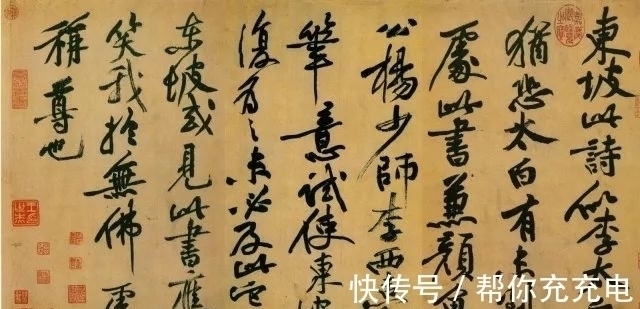 東坡此詩似李太
猶恐太白有未到
處此書兼顏魯
公楊少師李西
筆意試使東坡
復為之未必及此它
東坡或見此書應
笑我於無佛處
稱尊也
快传号 / 帮你充充电